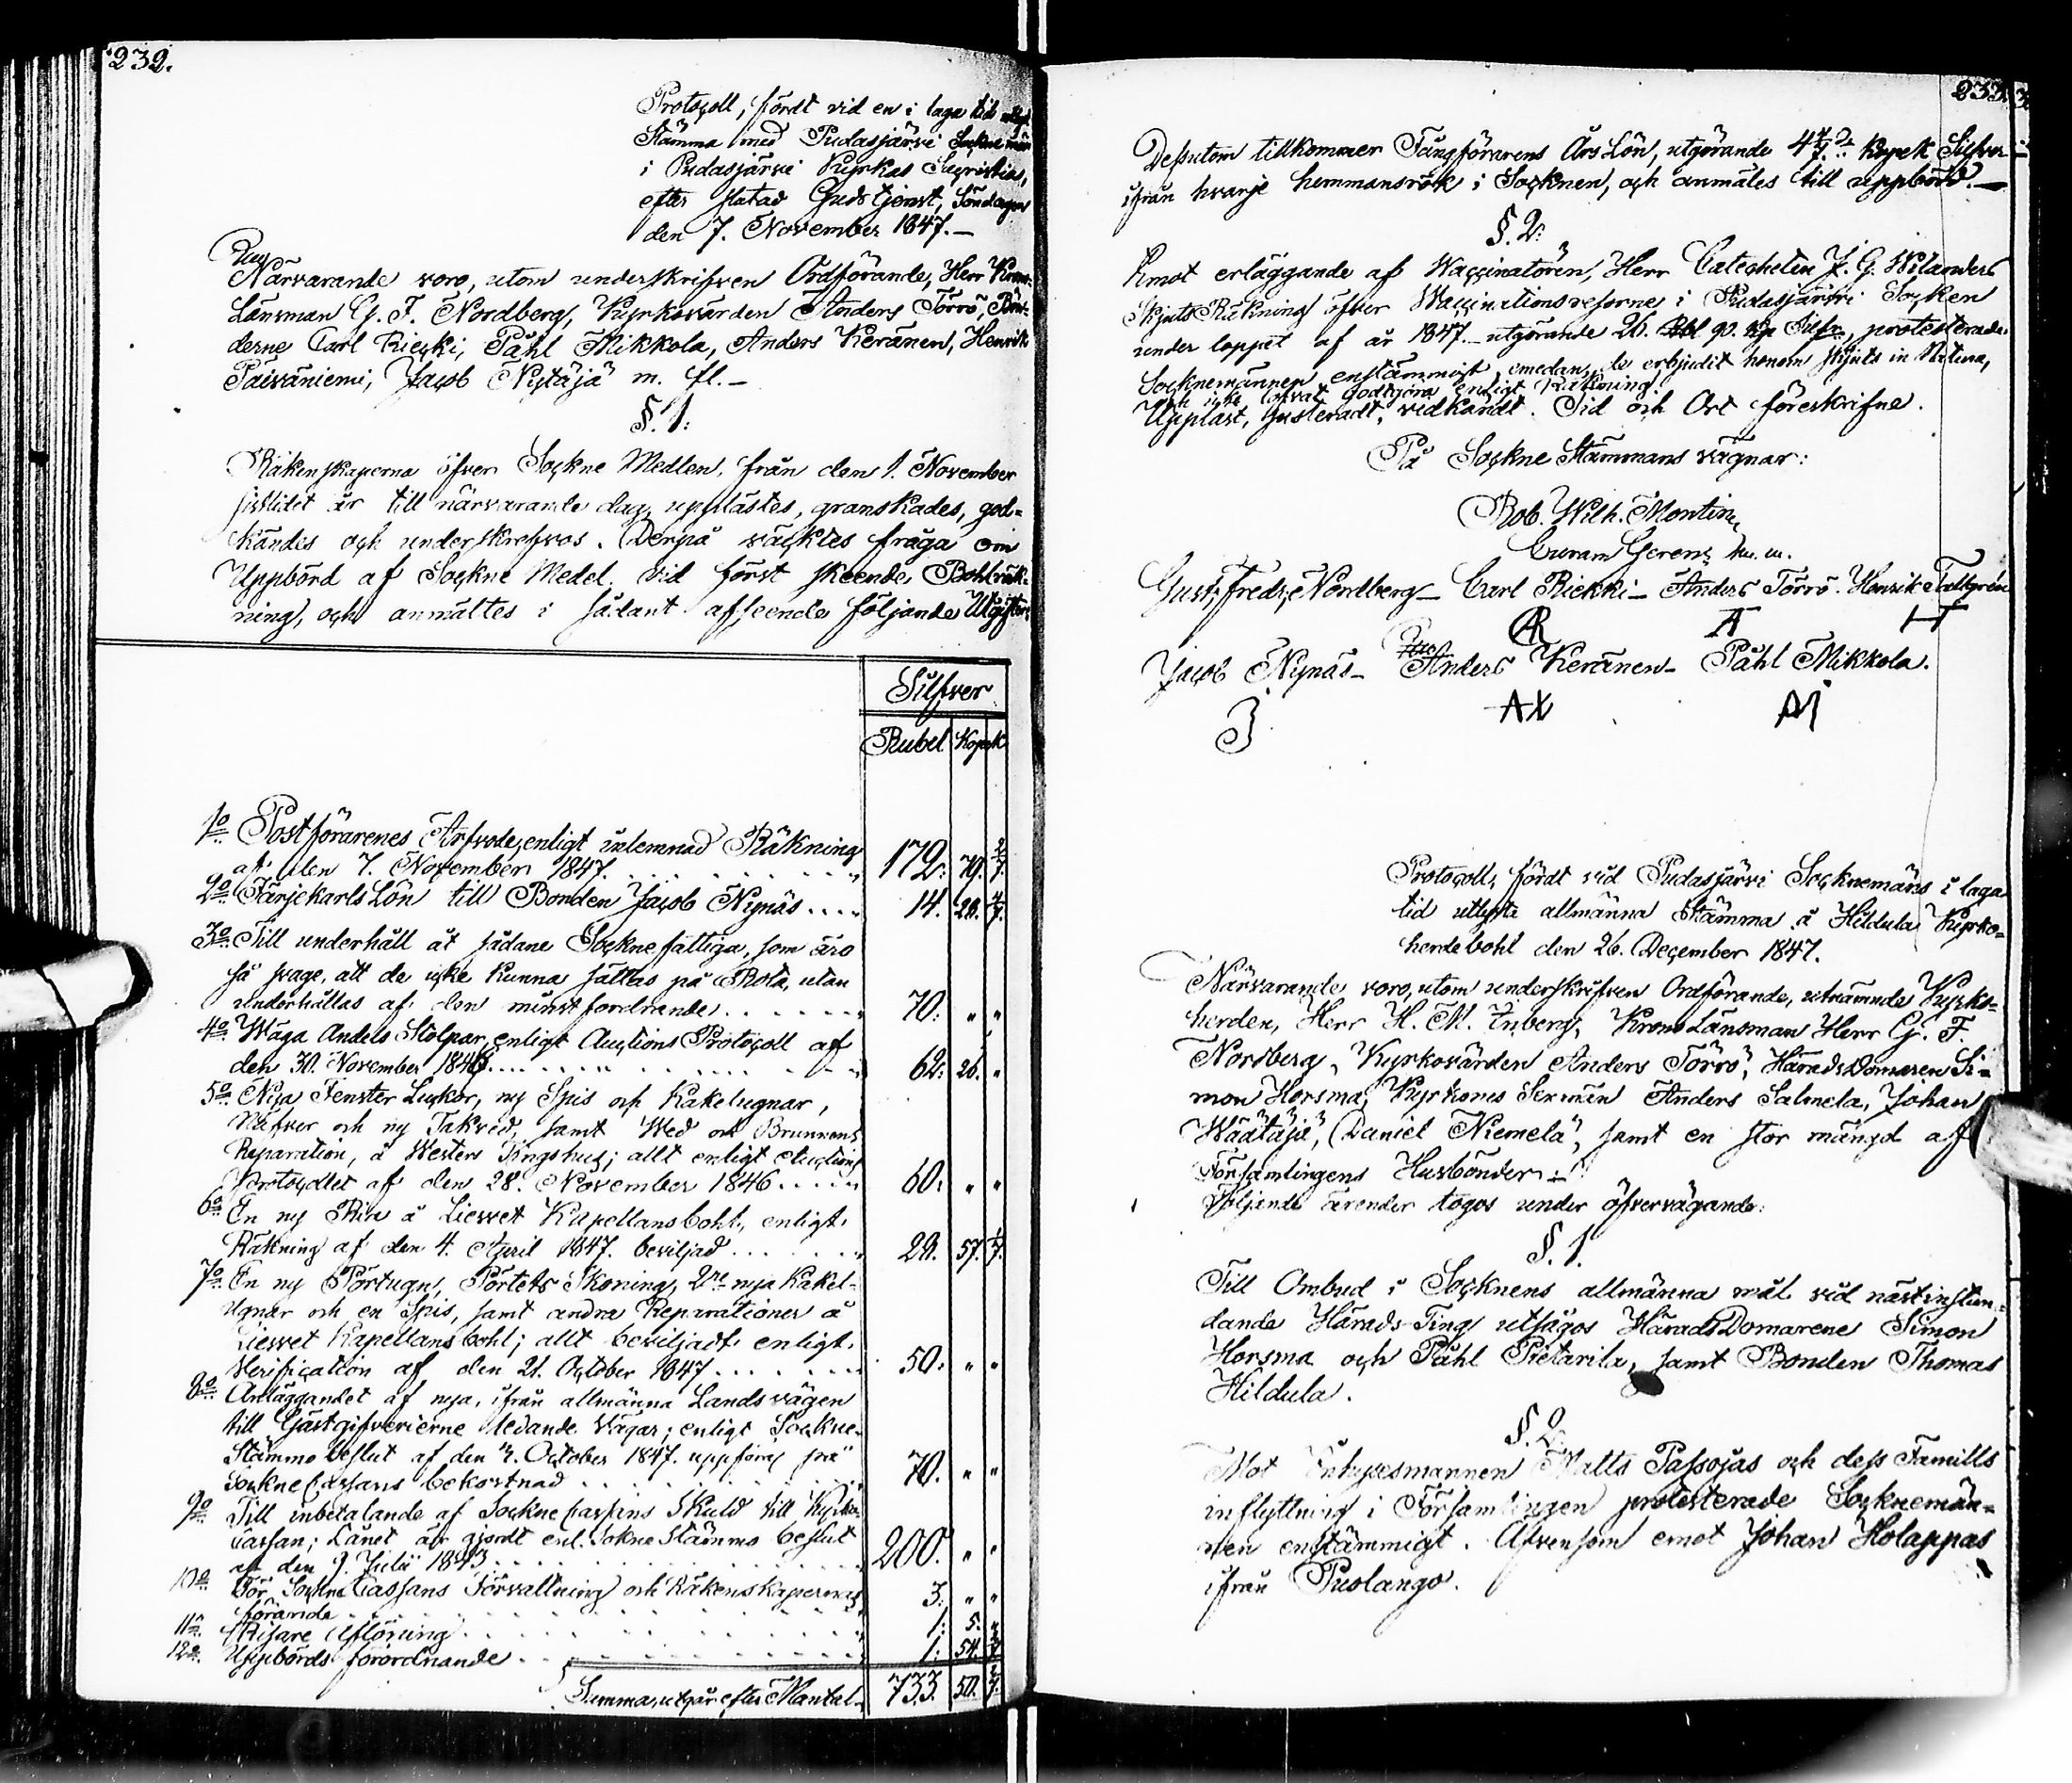 232.
Protocoll, fördt vid en i laga tid
Stämma med Pudasjärvi Sockne män
i Pudasjärvi Kyrkas Sacristia,
efter slutad Gudstjenst, Söndagen
den 7. November 1847.—
Närvarande voro, utom underskrifven Ordförande, Herr Krono-
Länsman G. F. Nordberg, Kyrkovärden Anders Törrö, Bön-
derne Carl Riecki, Påhl Mikkola, Anders Keränen, Henrik
Päiväniemi, Jacob Nystäjä m. fl.—
§. 1:
Räkenskaperna öfver Sockne Medlen, från den 1. November
sistlidit år till närvarande dag, upplästes, granskades, god-
kändes och underskrefvos. Derpå väcktes fråga om
Uppbörd af Sockne Medel vid först skeende Bohlräk-
ning, och anmältes i sådant afseende följande Utgifter:
Silfver
Rubel Kopek
1o Postförarenes Arfvode, enligt inlemnad Räkning
af den 7. November 1847. . . . 172. 79. 2/7.
2o Färjekarls Lön till Bonden Jacob Nynäs . . . . 14. 28. 4/7.
3o Till underhåll åt sådane Sockne fattiga, som äro
så svage, att de icke kunna sättas på Rota, utan
underhållas af den minst fordrande . . . . 70. " "
4o Wäga Andels Stolpar, enligt Auctions Protocoll af
den 30. November 1846. . . . 62. 26. "
5o Nya Fenster Luckor, ny Spis och Kakelugnar,
Näfver och ny Takved, samt Wed och Brunnens
Reparation, å Westers Tingshus; allt enligt Auctions
Protocollet af den 28. November 1846 . . . . 60. " "
6o En ny Ria å Liesvet Kapellansbohl, enligt
Räkning af den 4. April 1847. beviljad . . . . 28. 57. 1/7.
7o En ny Pörtugn, Pörtets Skoning, 2ne nya Kakel-
ugnar och en Spis, samt andra Reparationer å
Liesvet Kapellansbohl; allt beviljadt enligt
Verification af den 21. October 1847 . . . . 50. " "
8o Anläggandet af nya, ifrån allmänna Landsvägen
till Gästgifverierne ledande Vägar; enligt Sockne-
Stämmo beslut af den 3. October 1847. uppföras på
Sockne Cassans bekostnad . . . . 70. " "
9o Till inbetalande af Sockne Cassans Skuld till Kyrko-
Cassan; Lånet är gjordt enl. Sokne Stämmo beslut
af den 9. Julii 1843 . . . . 200. " "
10o För Sockne Cassans Förvaltning och Räkenskapernas
förande . . . . 3. " "
11o aflöning . . . . 1. 5. "
12o Uppbörds förordnande . . . . 1. 54.
Summa, utgår efter Mantal. 733. 50. 2/7.
233.
Dessutom tillkommer Fångförarens Års Lön, utgörande 4 4/7. kopek Silfver
ifrån hvarje hemmansrök i Socknen, och anmäles till uppbörd.—
§. 2:
Emot erläggande af Waccinatören, Herr Catecheten J. G. Wilanders
Skjuts Räkning öfver Waccinationsresorne i Pudasjärvi Socken
under loppet af år 1847.— utgörande 26. Rbl 90. Kp Silfr., protesterade
Socknemännen enstämmigt, emedan de erbjudit honom skjuts in Natura,
och icke lofvat godtgöra enligt Räkning.
Uppläst, justeradt, vidkändt. Tid och Ort föreskrifne.
På Sockne Stämmans vägnar:
Rob. Wilh. Montin,
Curam Gerens m. m.
Gust. Fredr. Nordberg— Carl Riekki— Anders Törrö. Henrik Tallgren
Jacob Nynäs— Anders Keränen— Påhl Mikkola.
Protocoll, fördt vid Pudasjärvi Socknemäns i laga
tid utlysta allmänna Stämma å Hildula Kyrko-
herdebohl den 26. December 1847.
Närvarande voro, utom underskrifven Ordförande, utnämnde Kyrko-
herden, Herr H. M. Inberg, Krono Länsman Herr G. F.
Nordberg, Kyrkovärden Anders Törrö, Härads Domaren Si-
mon Horsma, Kyrkones Sexmän Anders Salmela, Johan
Wäätäjä, Daniel Niemelä, samt en stor mängd af
Församlingens Husbönder.—
Följande ärender togos under öfvervägande:
§. 1.
Till Ombud i Socknens allmänna mål vid nästinstun-
dande Härads-Ting utsågos Härads Domarene Simon
Horsma och Påhl Pietarila, samt Bonden Thomas
Hildula.
§. 2.
Mot Inhysesmannen Matts Passojas och dess Famills
inflyttning i Församlingen protesterade Socknemän-
nen enstämmigt. Äfvensom emot Johan Holappas
ifrån Puolango.